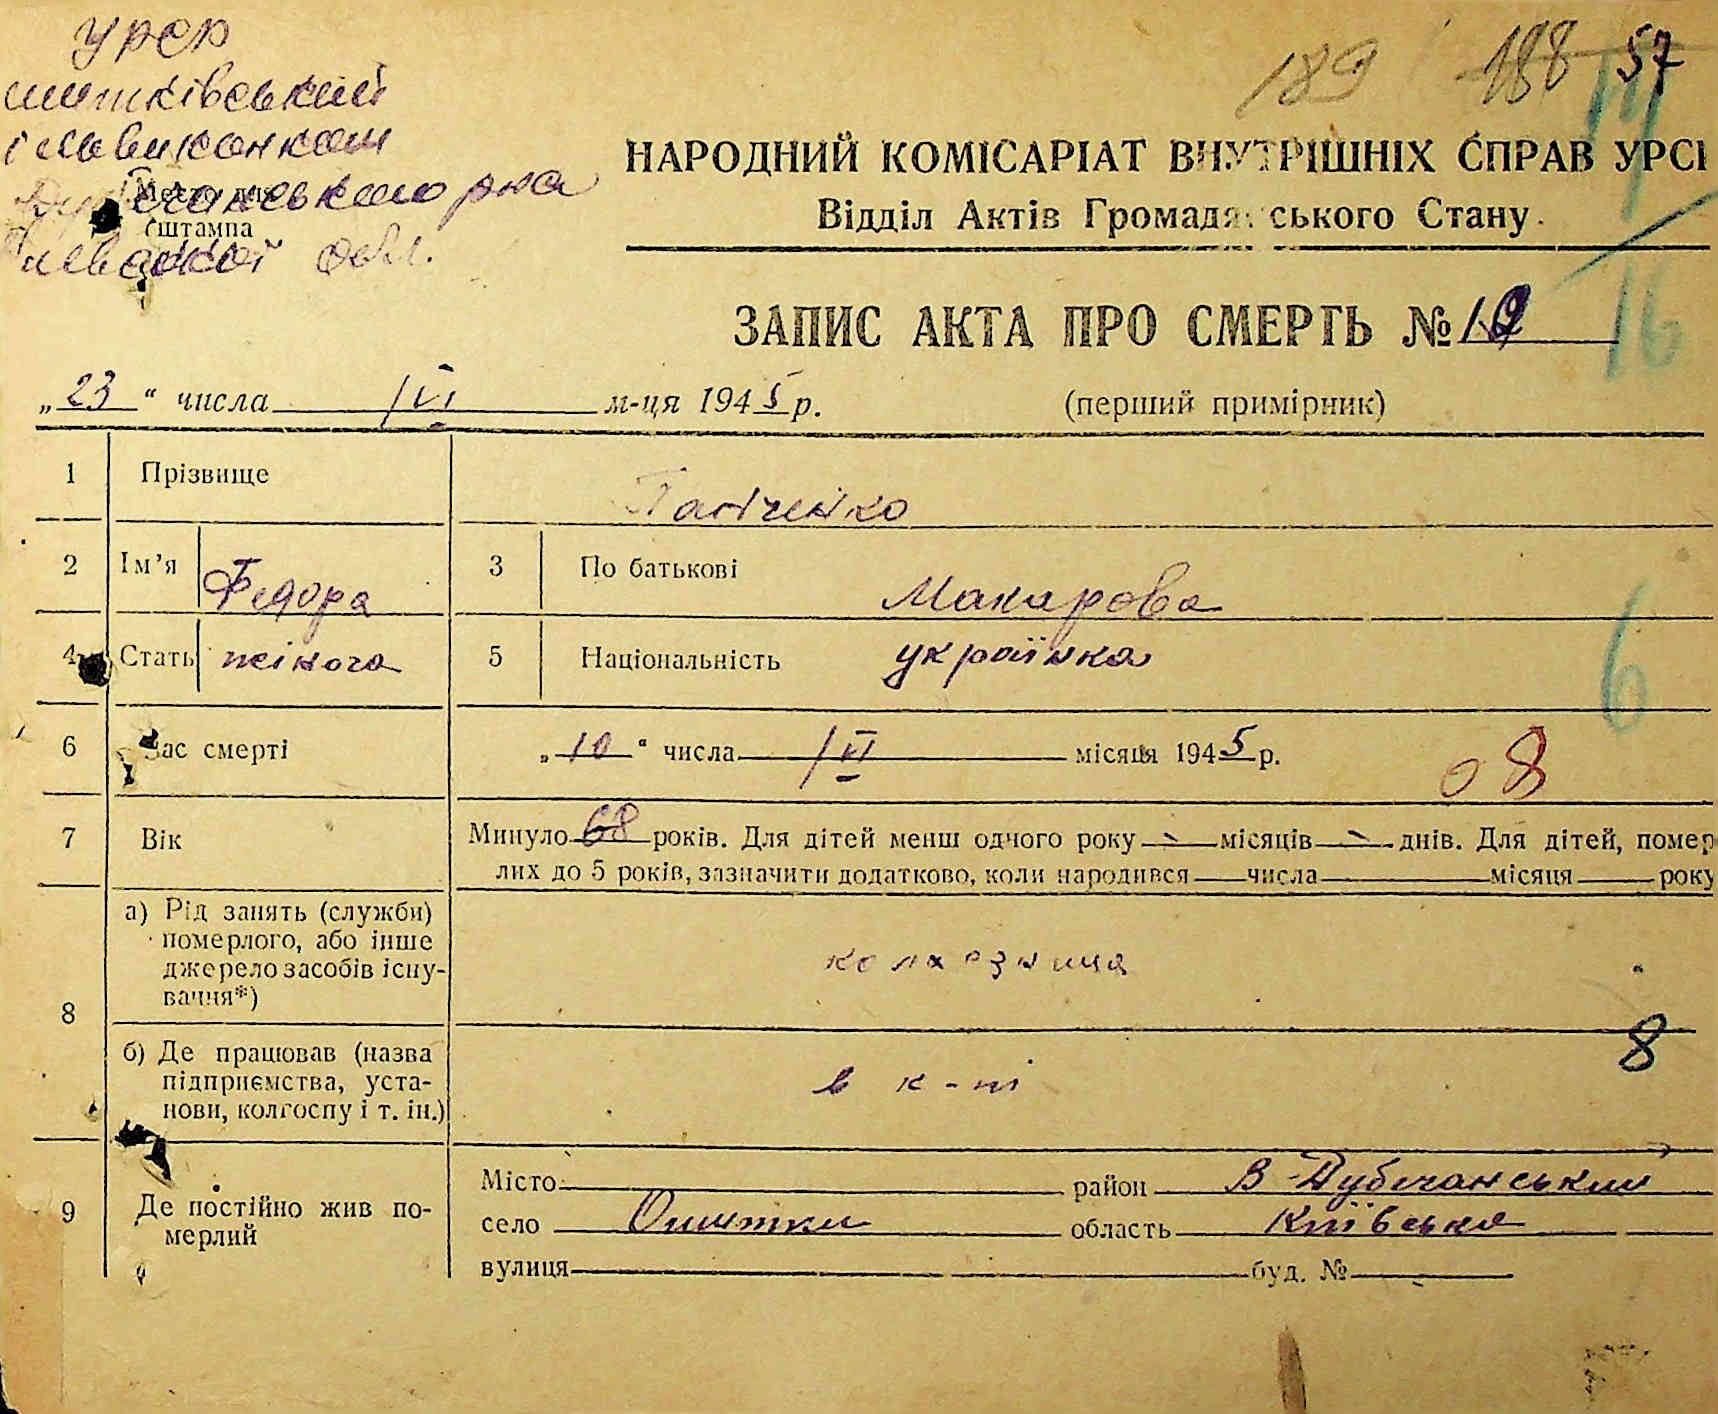 УРСР
сільвиконком
області обл.
189 188 57
НАРОДНИЙ КОМІСАРІАТ ВНУТРІШНІХ СПРАВ УРСР
Відділ Актів Громадянського Стану
штампа
16
ЗАПИС АКТА ПРО СМЕРТЬ №
„23“ числа IVI м-ця 1945 р. (перший примірник)
1 Прізвище
2 Ім’я Федора 3 По батькові Макарова
4 Стать жіноча 5 Національність українка
6
6 Час смерті „10“ числа IVI місяця 1945 р.
08
7 Вік Минуло 68 років. Для дітей менш одного року — місяців — днів. Для дітей, помер
лих до 5 років, зазначити додатково, коли народився числа місяця року
8 а) Рід занять (служби)
померлого, або інше
джерело засобів існу-
вання*) колхозниця
б) Де працював (назва
підприємства, уста-
нови, колгоспу і т. ін.) в к-пі
8
9 Де постійно жив по-
мерлий
Місто район В-Дубечанський
село Ошитки область Київська
вулиця буд. №